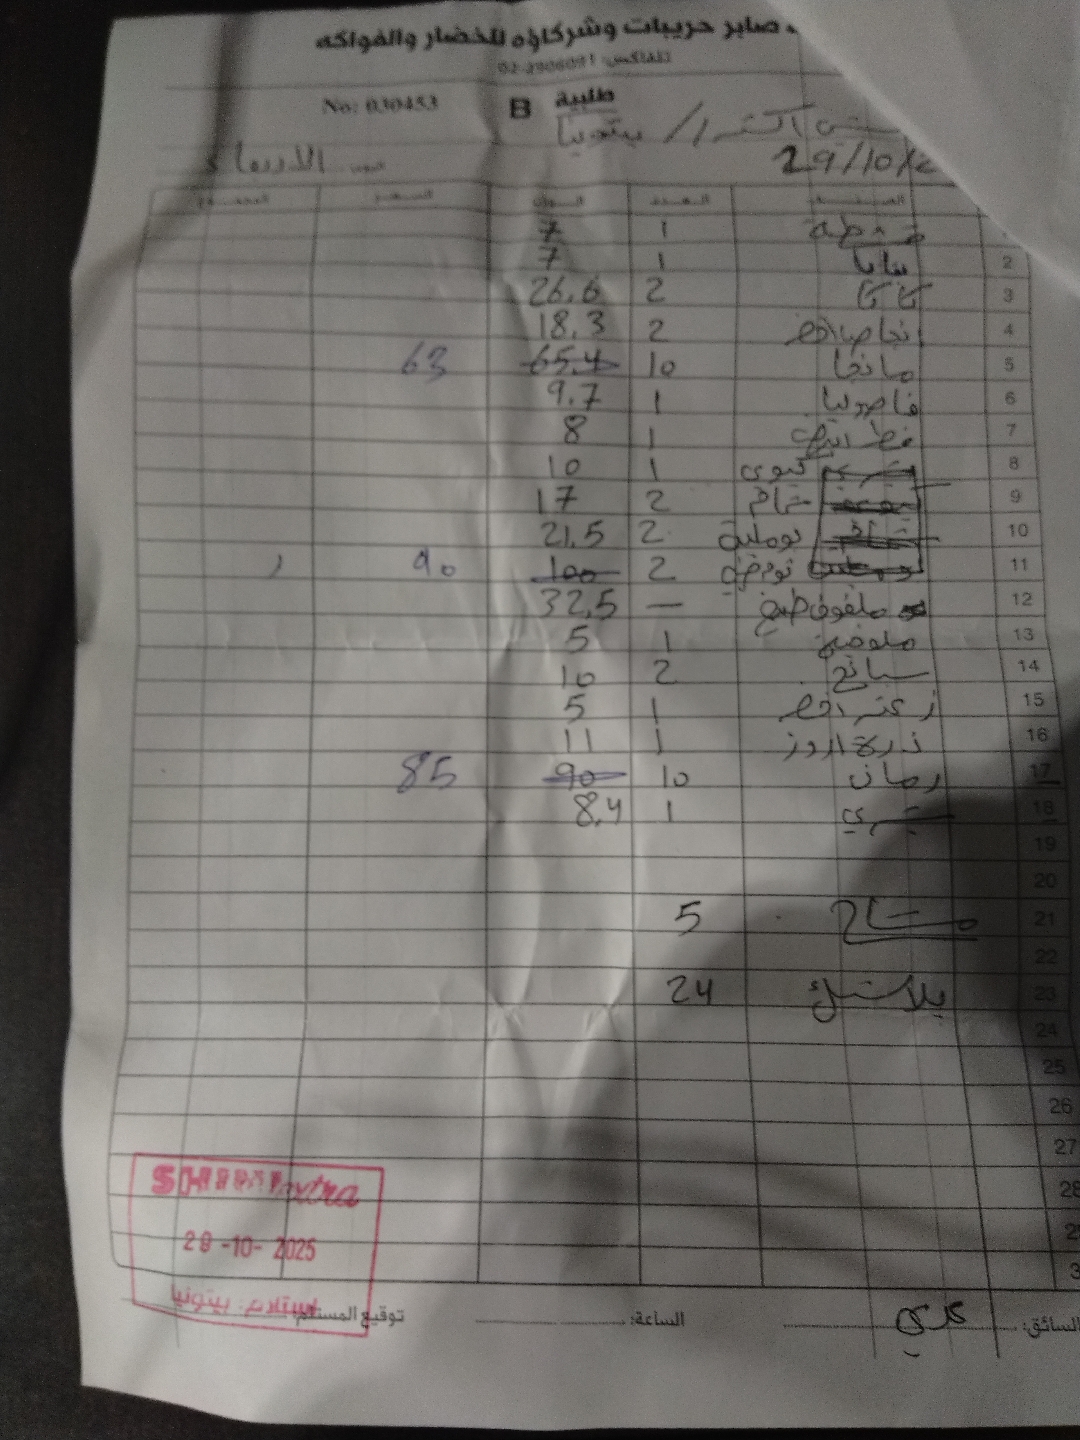 صابر حريبات وشركاؤه للخضار والفواكه
تلفاكس: 02-2906091
No: 030453 B طلبية
اكسترا / بيتونيا
اليوم: الاربعاء 29/10/2
الصنف العدد الوزن السعر المجموع
قشطة 1 7
2 بابايا 1 7
3 كاكا 2 26.6
4 نجاص اخضر 2 18.3
5 مانجا 10 65.4 63
6 فاصوليا 1 9.7
7 1 8
8 كيوى 1 10
9 2 17
10 بوملية 2 21.5
11 2 100 90
12 ملفوف طبيخ — 32.5
13 ملوخية 1 5
14 سبانخ 2 10
15 زعتر اخضر 1 5
16 1 11
17 رمان 10 90 85
18 1 8.4
19
20
21 مشاح 5
22
23 بلاستيك 24
24
25
26
27
28
SHINI extra
29-10-2025
استلام - بيتونيا
السائق: الساعة: توقيع المستلم: